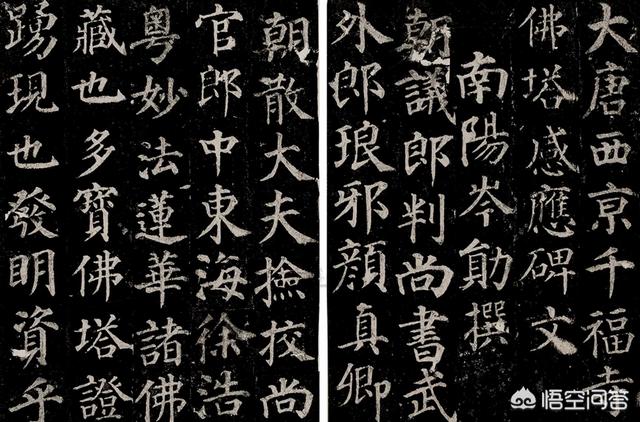 大唐西亰千福寺
佛塔感應碑文
南陽岑勛撰
朝議郎判尚書武
外郎琅邪顏真卿
朝散大夫撿挍尚
官郎中東海徐浩
粵妙法蓮華諸佛
藏也多寶佛塔證
踴現也發明資乎
悟空问答